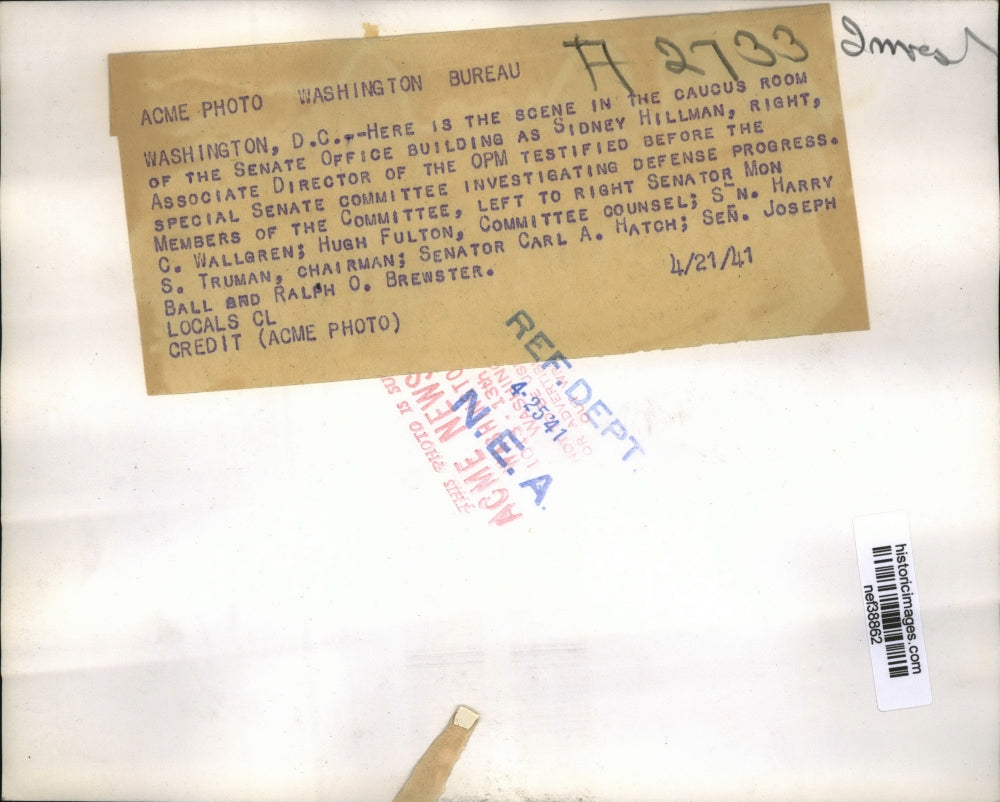 A 2733
ACME PHOTO WASHINGTON BUREAU
WASHINGTON, D.C.--HERE IS THE SCENE IN THE CAUCUS ROOM
OF THE SENATE OFFICE BUILDING AS SIDNEY HILLMAN, RIGHT,
ASSOCIATE DIRECTOR OF THE OPM TESTIFIED BEFORE THE
SPECIAL SENATE COMMITTEE INVESTIGATING DEFENSE PROGRESS.
MEMBERS OF THE COMMITTEE, LEFT TO RIGHT SENATOR MON
C. WALLGREN; HUGH FULTON, COMMITTEE COUNSEL; S N. HARRY
S. TRUMAN, CHAIRMAN; SENATOR CARL A. HATCH; SEN. JOSEPH
BALL AND RALPH O. BREWSTER.
LOCALS CL
CREDIT (ACME PHOTO)
4/21/41
REF. DEPT
4-25 41
N. E. A.
ACME NEWS
THIS PHOTO IS
historicimages.com
nef38862